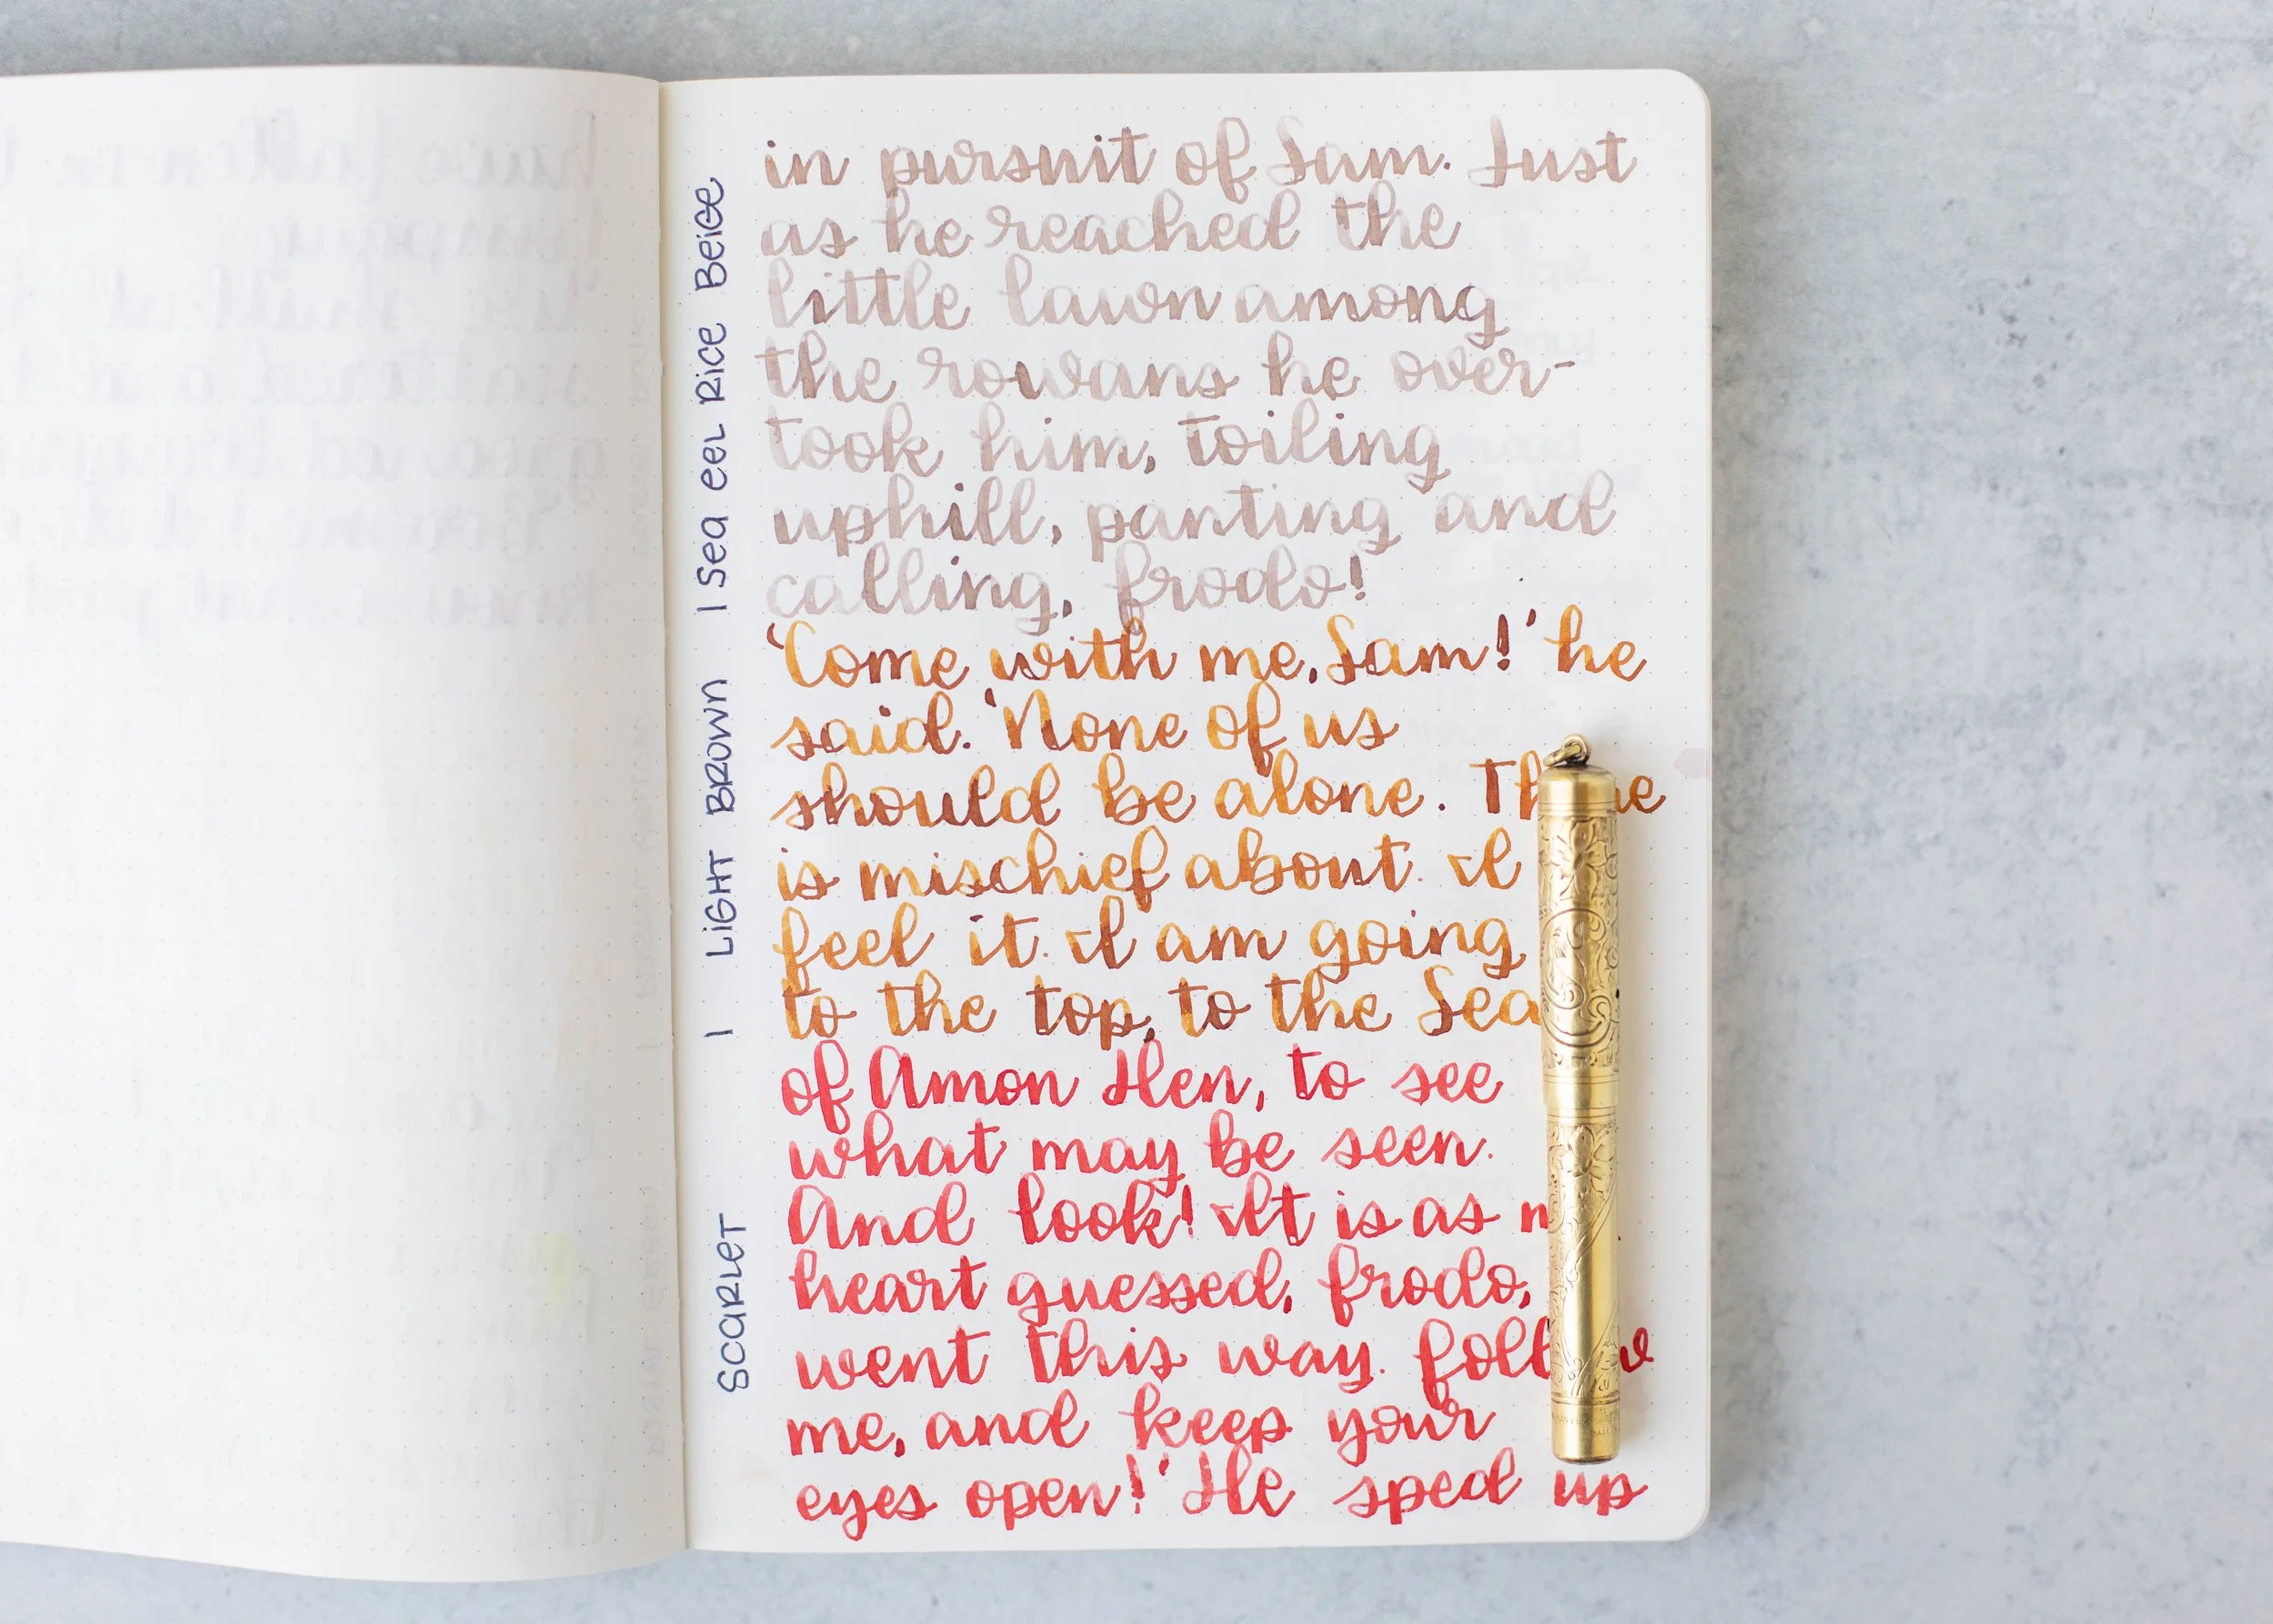 in pursuit of Sam. Just
as he reached the
little lawn among
the rowans he over-
took him, toiling
uphill, panting and
calling, Frodo!
'Come with me, Sam!' he
said. 'None of us
should be alone. There
is mischief about. I
feel it. I am going
to the top, to the Sea
of Amon Hen, to see
what may be seen.
And look! It is as m
heart guessed, Frodo,
went this way. Follow
me, and keep your
eyes open!' He sped up
Scarlet | Light Brown | Sea eel Rice Beige